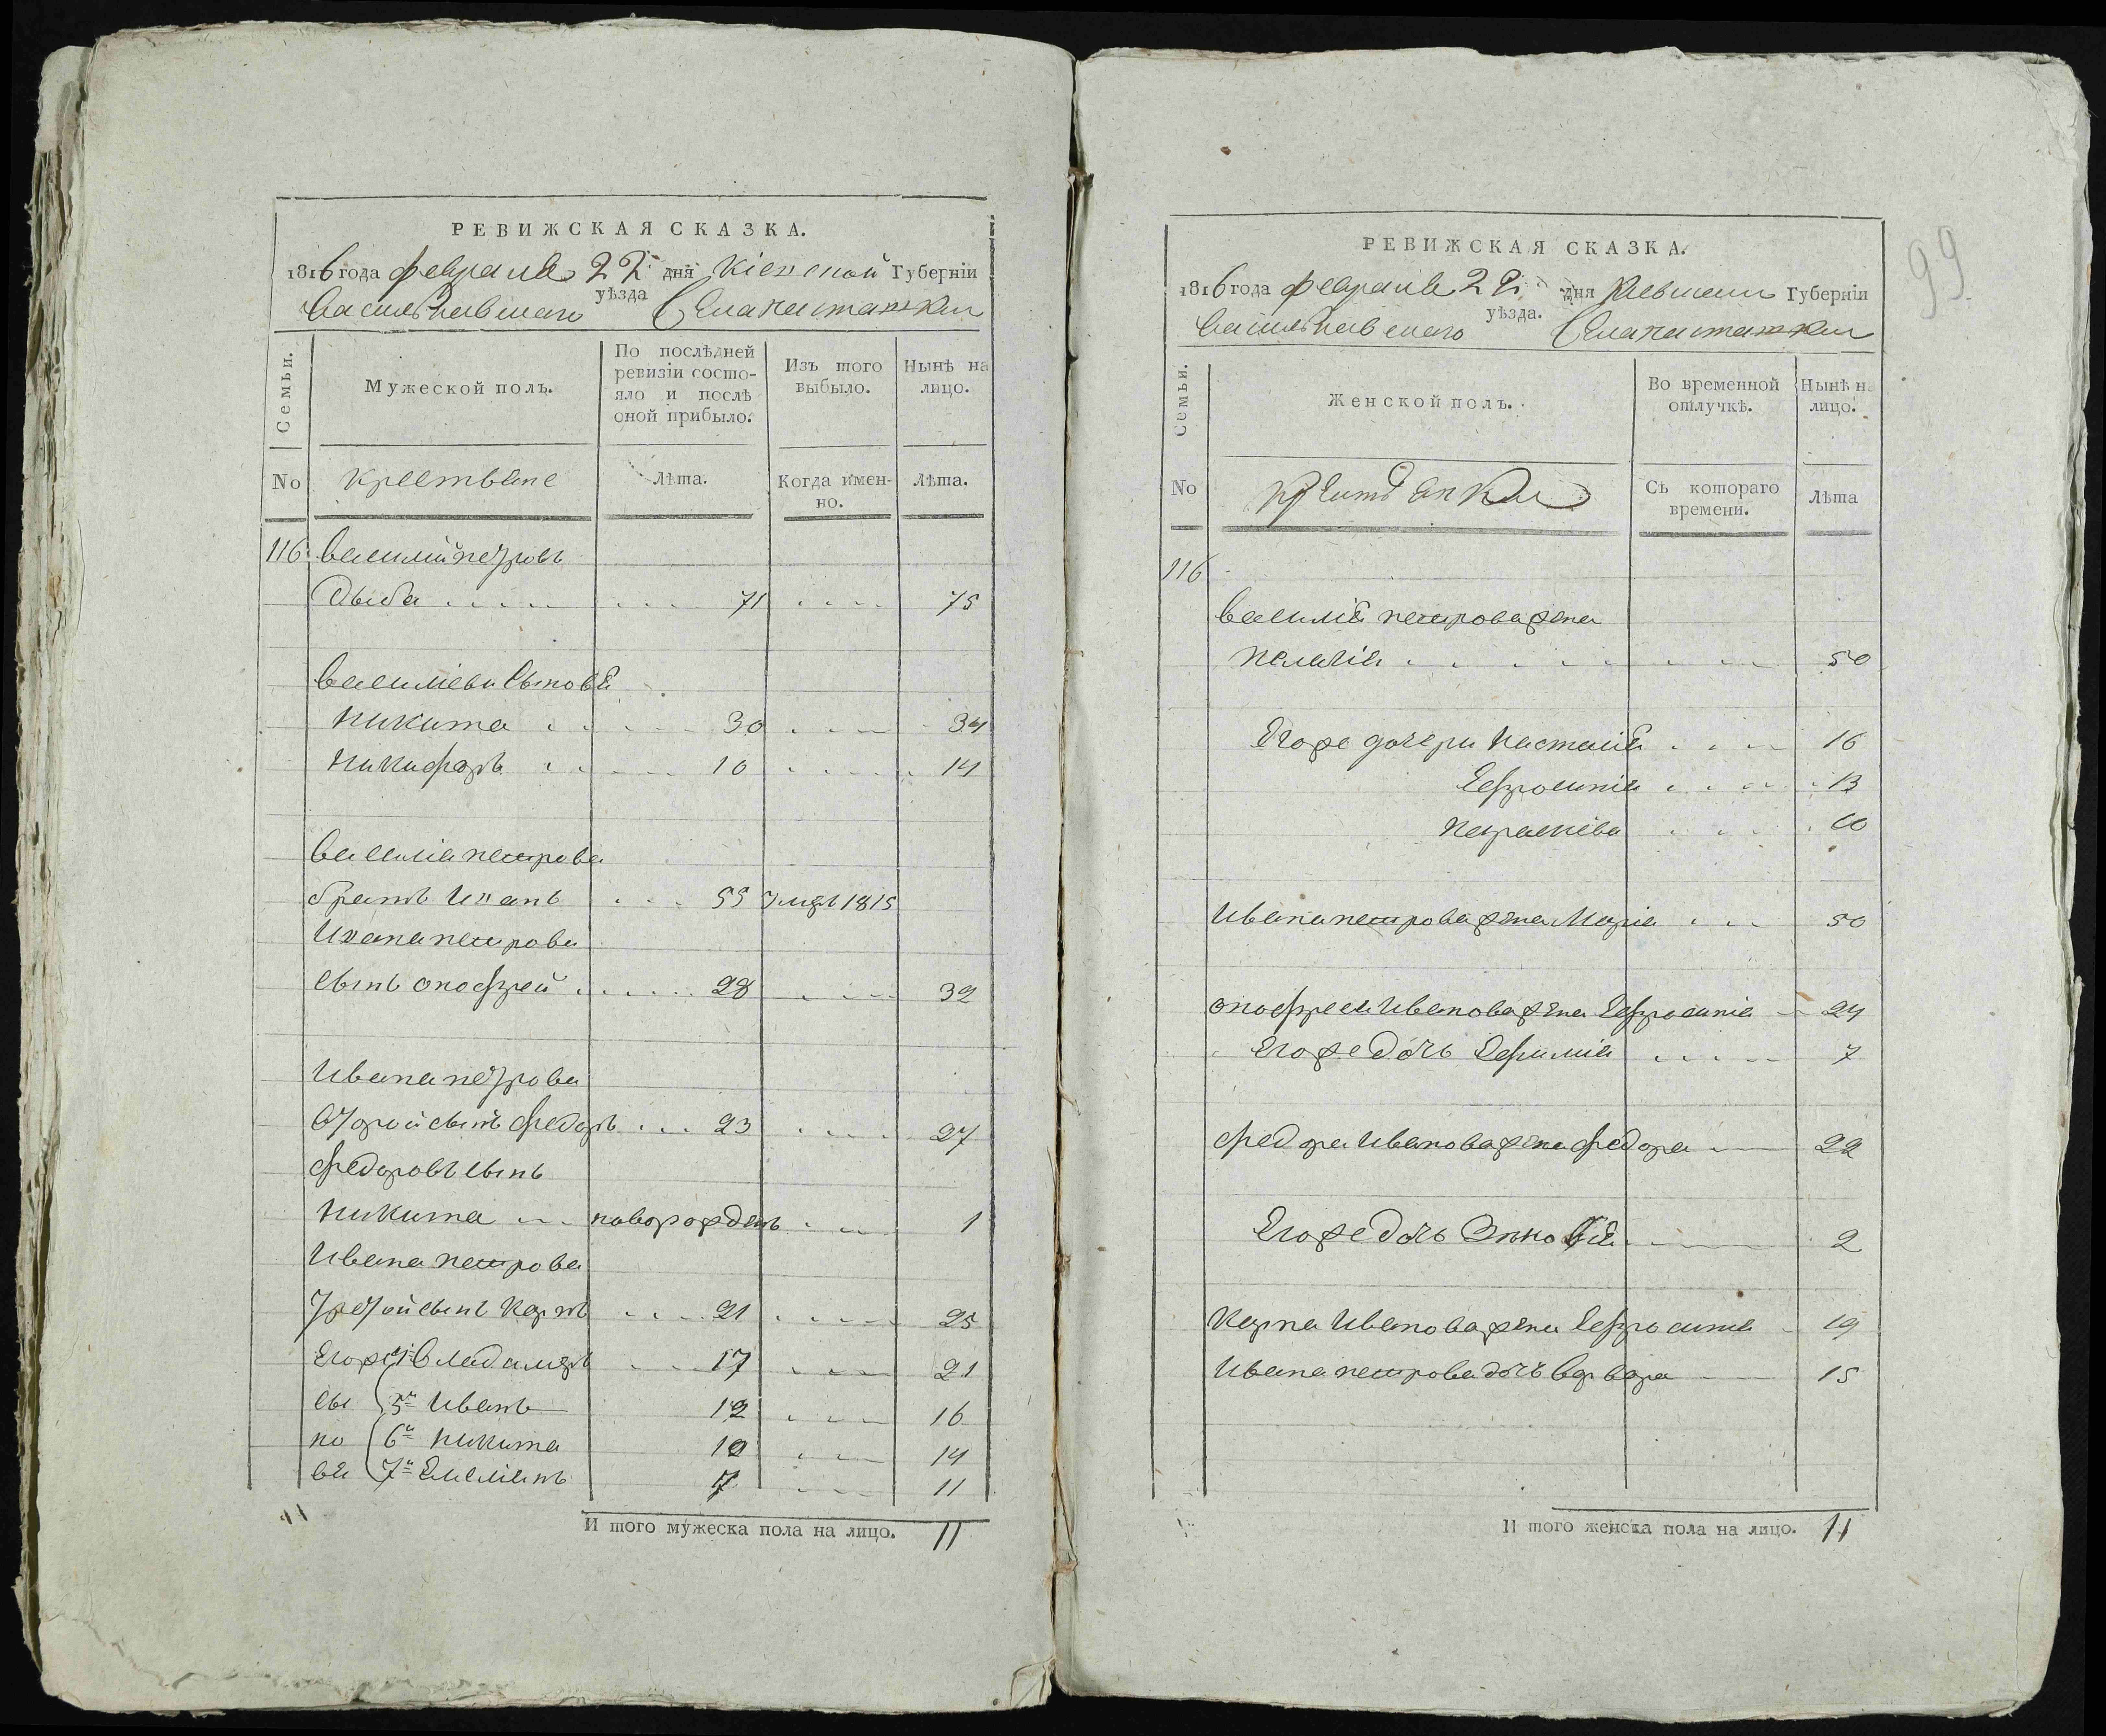 РЕВИЖСКАЯ СКАЗКА.
1816 года февраля 22 дня Кіевской Губерніи
Васильковскаго уѣзда
Семьи.
Мужеской полъ.
По послѣдней ревизіи состояло и послѣ оной прибыло.
Изъ того выбыло.
Нынѣ на лицо.
No Крестьяне Лѣта. Когда именно. Лѣта.
116 Василий Петровъ
71 75
Василіевы сыновья
Никита 30 34
Никифоръ 10 14
Василія Петрова
братъ Иванъ 55 умръ 1815
Ивана Петрова
сынъ Онофрей 28 32
Ивана Петрова
второй сынъ Федоръ 23 27
Федоровъ сынъ
Никита новорожденъ 1
Ивана Петрова
третой сынъ Карпъ 21 25
Егоже 4й Владимеръ 17 21
сы 5й Иванъ 12 16
но 6й Никита 10 14
вя 7й Емеліянъ 7 11
И того мужеска пола на лицо. 11
99
РЕВИЖСКАЯ СКАЗКА.
1816 года февраля 22 дня Киевской Губерніи
Васильковского уѣзда.
Семьи.
Женской полъ.
Во временной отлучкѣ.
Нынѣ на лицо.
No Крестьянки Съ котораго времени. Лѣта
116
Василія Петрова жена
Пелагія 50
Егоже дочери Настасія 16
Ефросинія 13
Параскева 10
Ивана Петрова жена Марія 50
Онофрея Иванова жена Ефросинія 24
Егоже дочь Ефимія 7
Федора Иванова жена Федора 22
Егоже дочь Зѣновія 2
Карпа Иванова жена Ефросинія 19
Ивана Петрова дочь Варвара 15
И того женска пола на лицо. 11